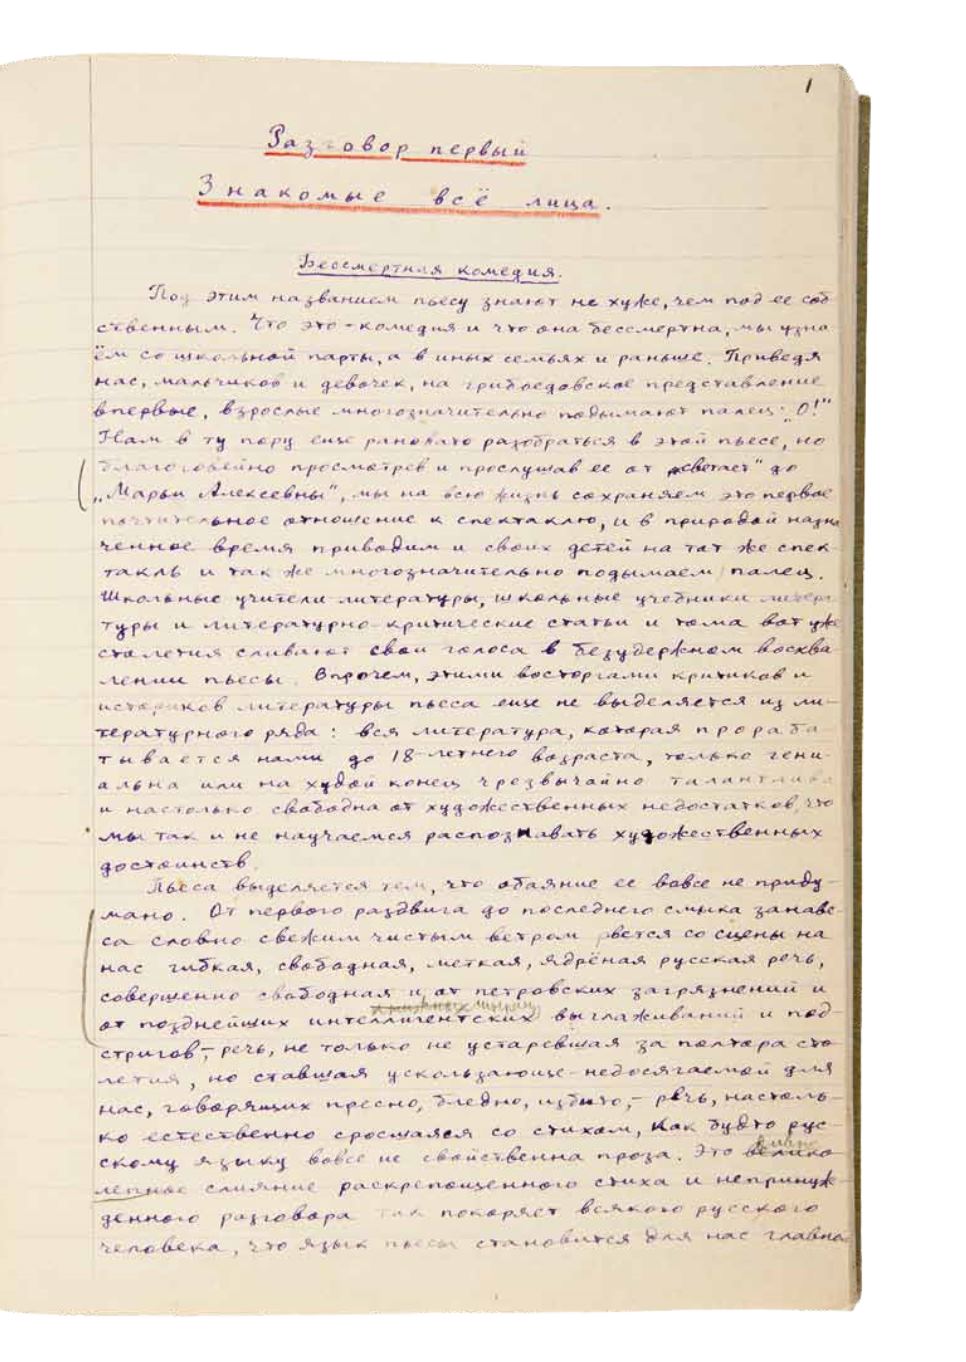 1
Разговор первый
Знакомые всё лица.
Бессмертная комедия.
Под этим названием пьесу знают не хуже, чем под ее соб
ственным. Что это – комедия и что она бессмертна, мы узна
ём со школьной парты, а в иных семьях и раньше. Приведя
нас, мальчиков и девочек, на грибоедовское представление
впервые, взрослые многозначительно подымают палец: „О!"
Нам в ту пору еще рановато разобраться в этой пьесе, но
благоговейно просмотрев и прослушав ее от „светает" до
„Марьи Алексевны", мы на всю жизнь сохраняем это первое
почтительное отношение к спектаклю, и в природой назна
ченное время приводим и своих детей на тот же спек-
такль и так же многозначительно подымаем палец.
Школьные учители литературы, школьные учебники литера
туры и литературно-критические статьи и тома вот уже
столетия сливают свои голоса в безудержном восхва-
лении пьесы. Впрочем, этими восторгами критиков и
историков литературы пьеса еще не выделяется из ли-
тературного ряда: вся литература, которая прораба-
тывается нами до 18-летнего возраста, только гени-
альна или на худой конец чрезвычайно талантлива
и настолько свободна от художественных недостатков, что
мы так и не научаемся распознавать художественных
достоинств.
Пьеса выделяется тем, что обаяние ее вовсе не приду-
мано. От первого раздвига до последнего смыка занаве-
са словно свежим чистым ветром рвется со сцены на
нас гибкая, свободная, меткая, ядрёная русская речь,
совершенно свободная и от петровских загрязнений и
от позднейших интеллигентских выглаживаний и под-
стригов, – речь, не только не устаревшая за полтора сто-
летия, но ставшая ускользающе-недосягаемой для
нас, говорящих пресно, бледно, избито, – речь, настоль-
ко естественно сросшаяся со стихом, как будто рус-
скому языку вовсе не свойственна проза. Это велико
дивно
лепное слияние раскрепощенного стиха и непринуж-
денного разговора так покоряет всякого русского
человека, что язык пьесы становится для нас главно